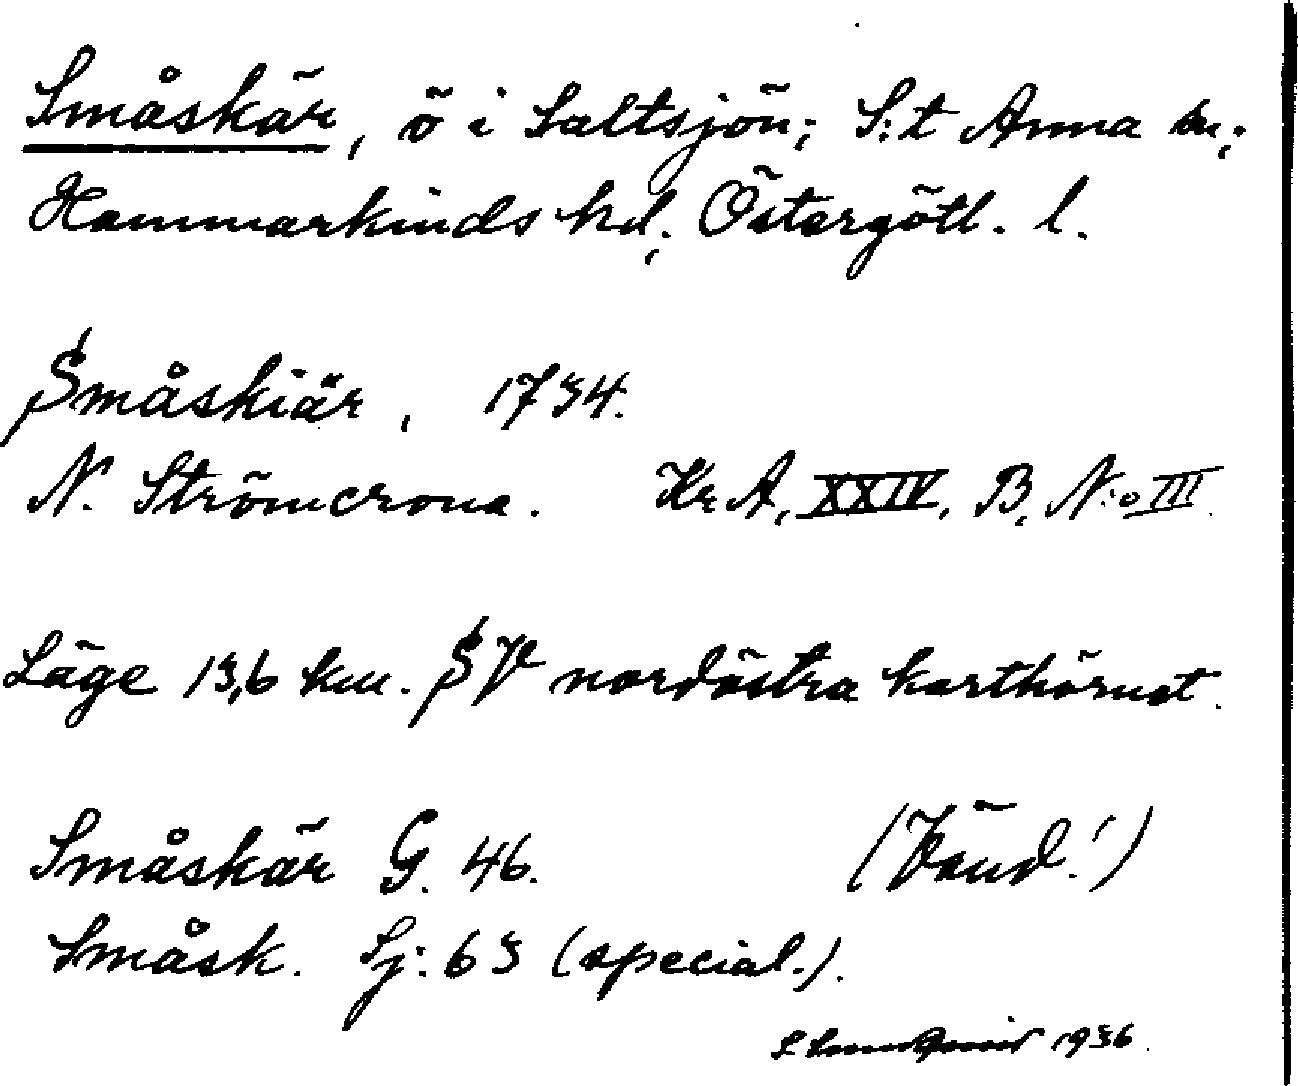 Småskär, ö i Saltsjön; S:t Anna sn;
Hammarkinds hd; Östergötl. l.
Småskiär, 1734.
N. Strömcrona. Kr A, XXIV, B, N:o III.
Läge 13,6 km. SV nordöstra karthörnet.
Småskär G. 46. (Vänd!)
Småsk. Sj: 63 (special.).
1936.